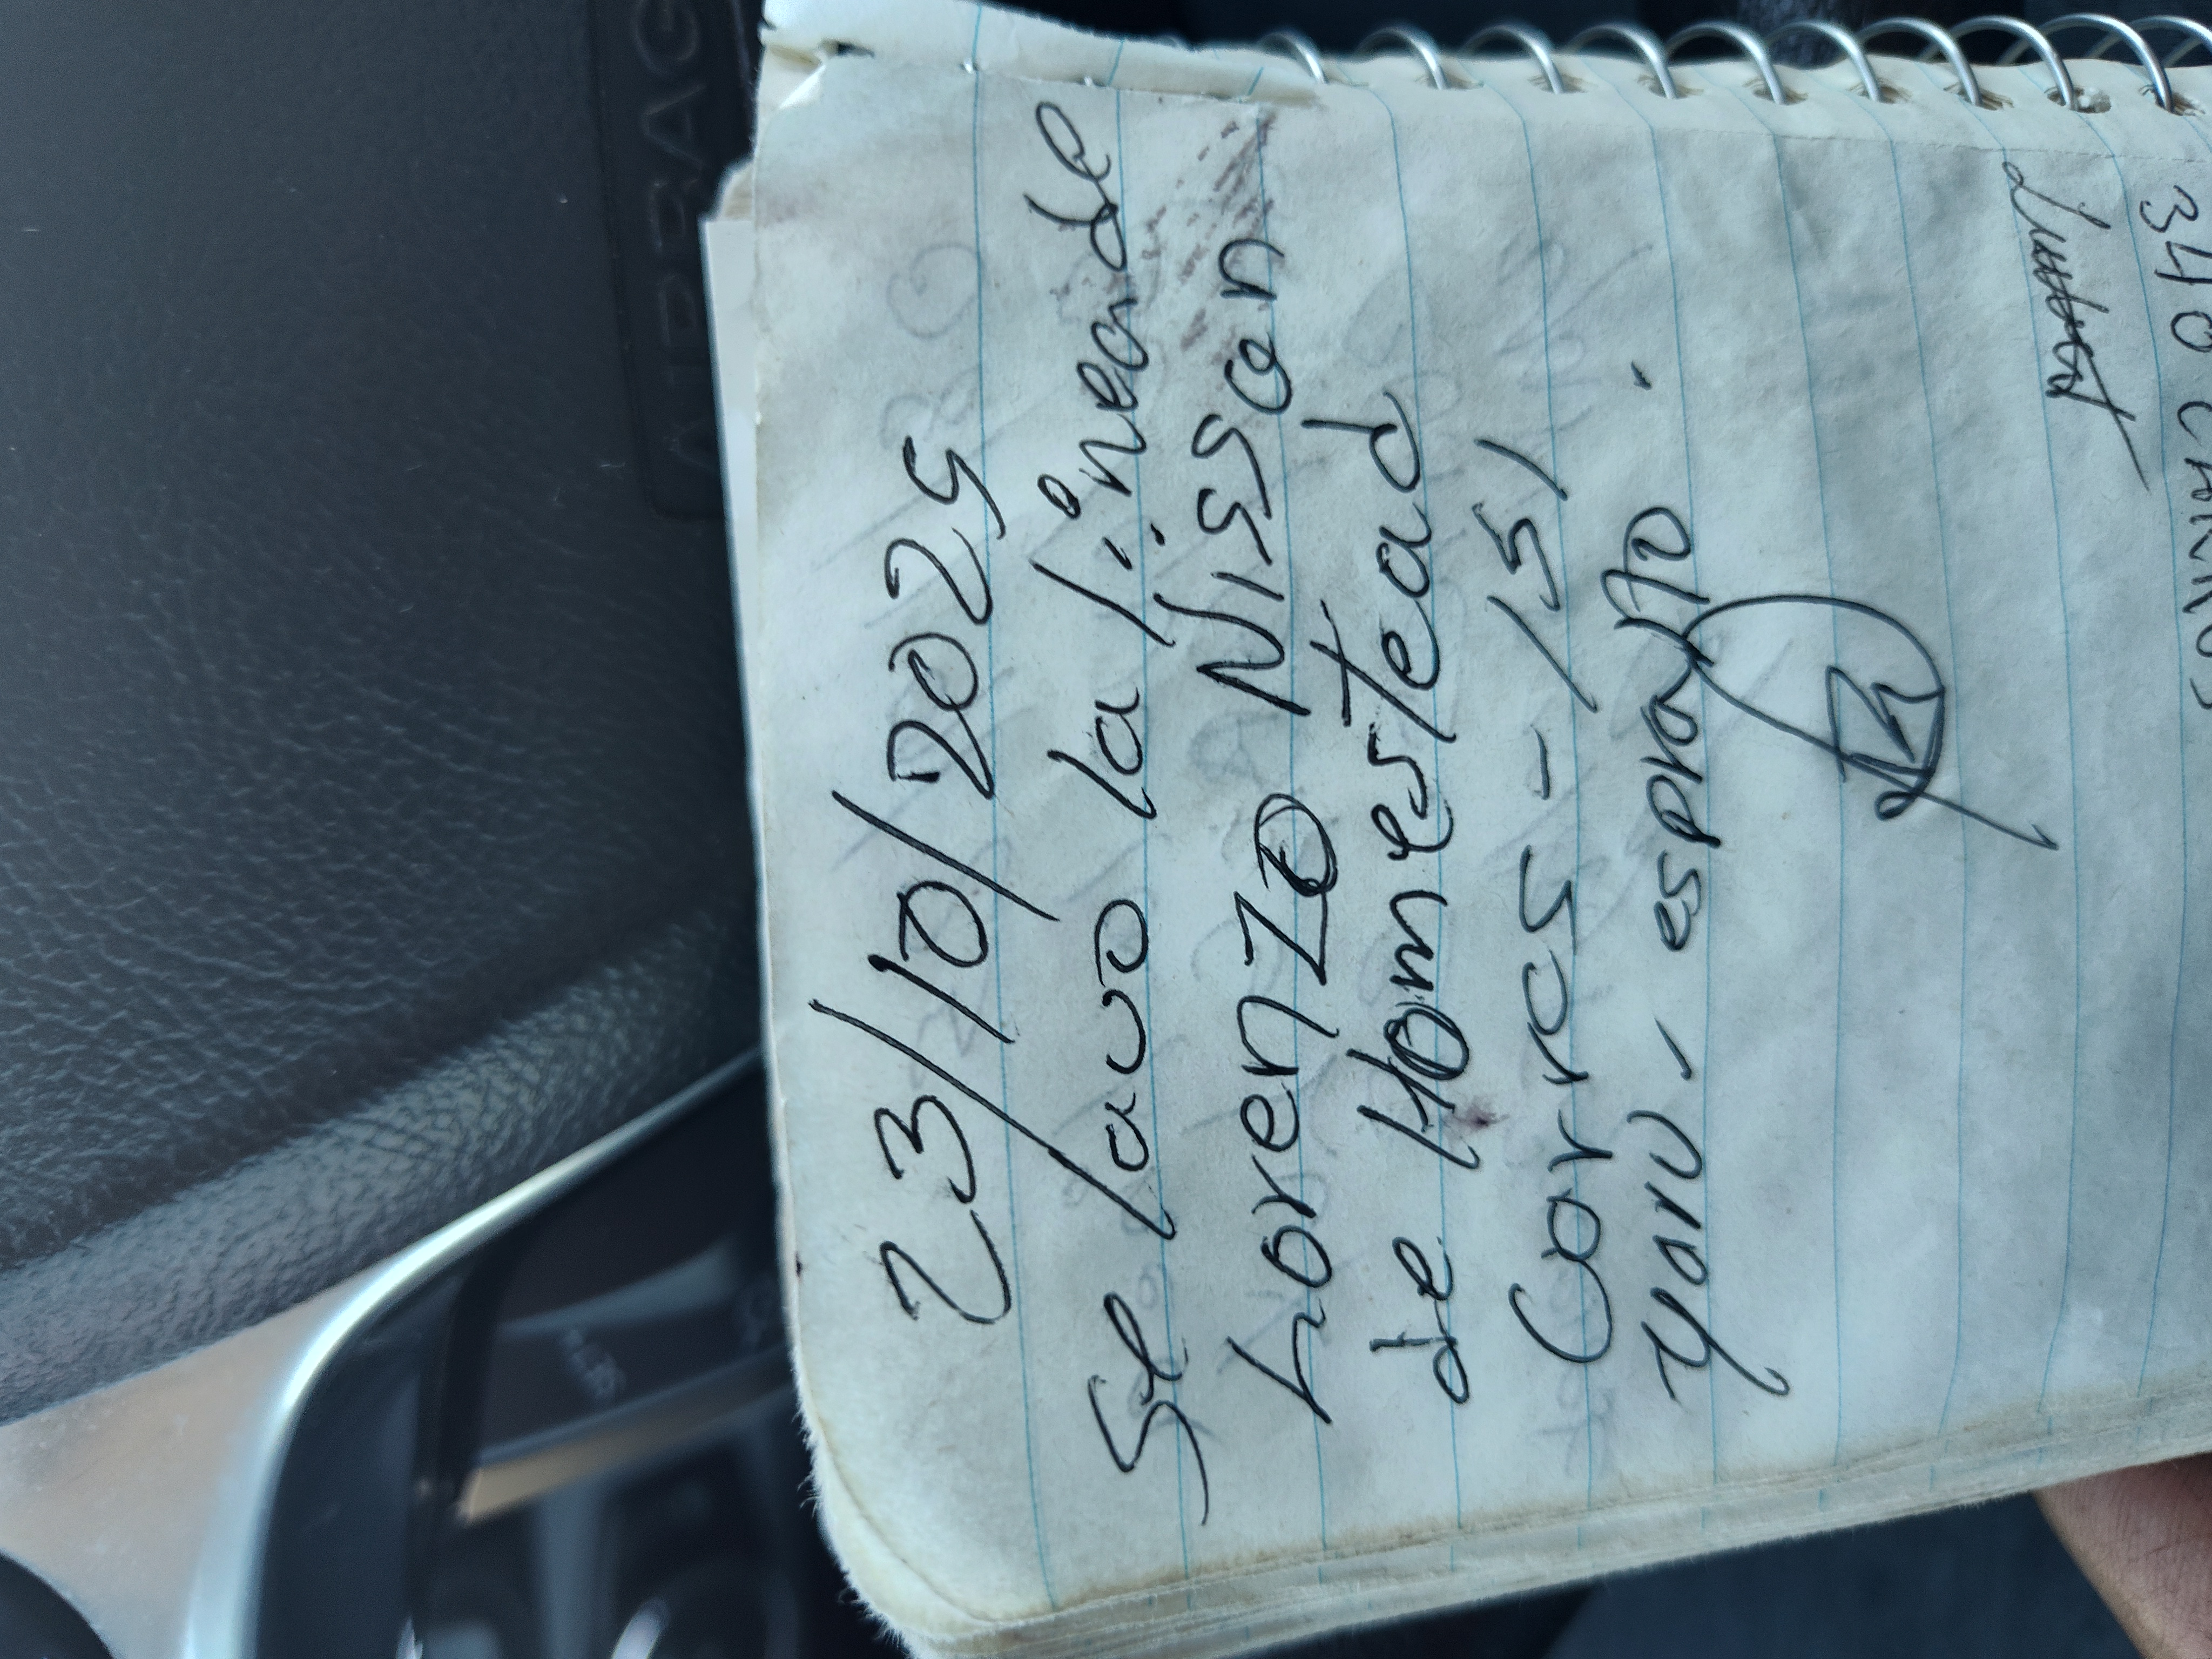 23/10/2025
Se lavo la linea de
Lorenzo Nissan
de Homestead
Carrcs - 151
yorv. esprayto.
340 CARROS
AIRBAG